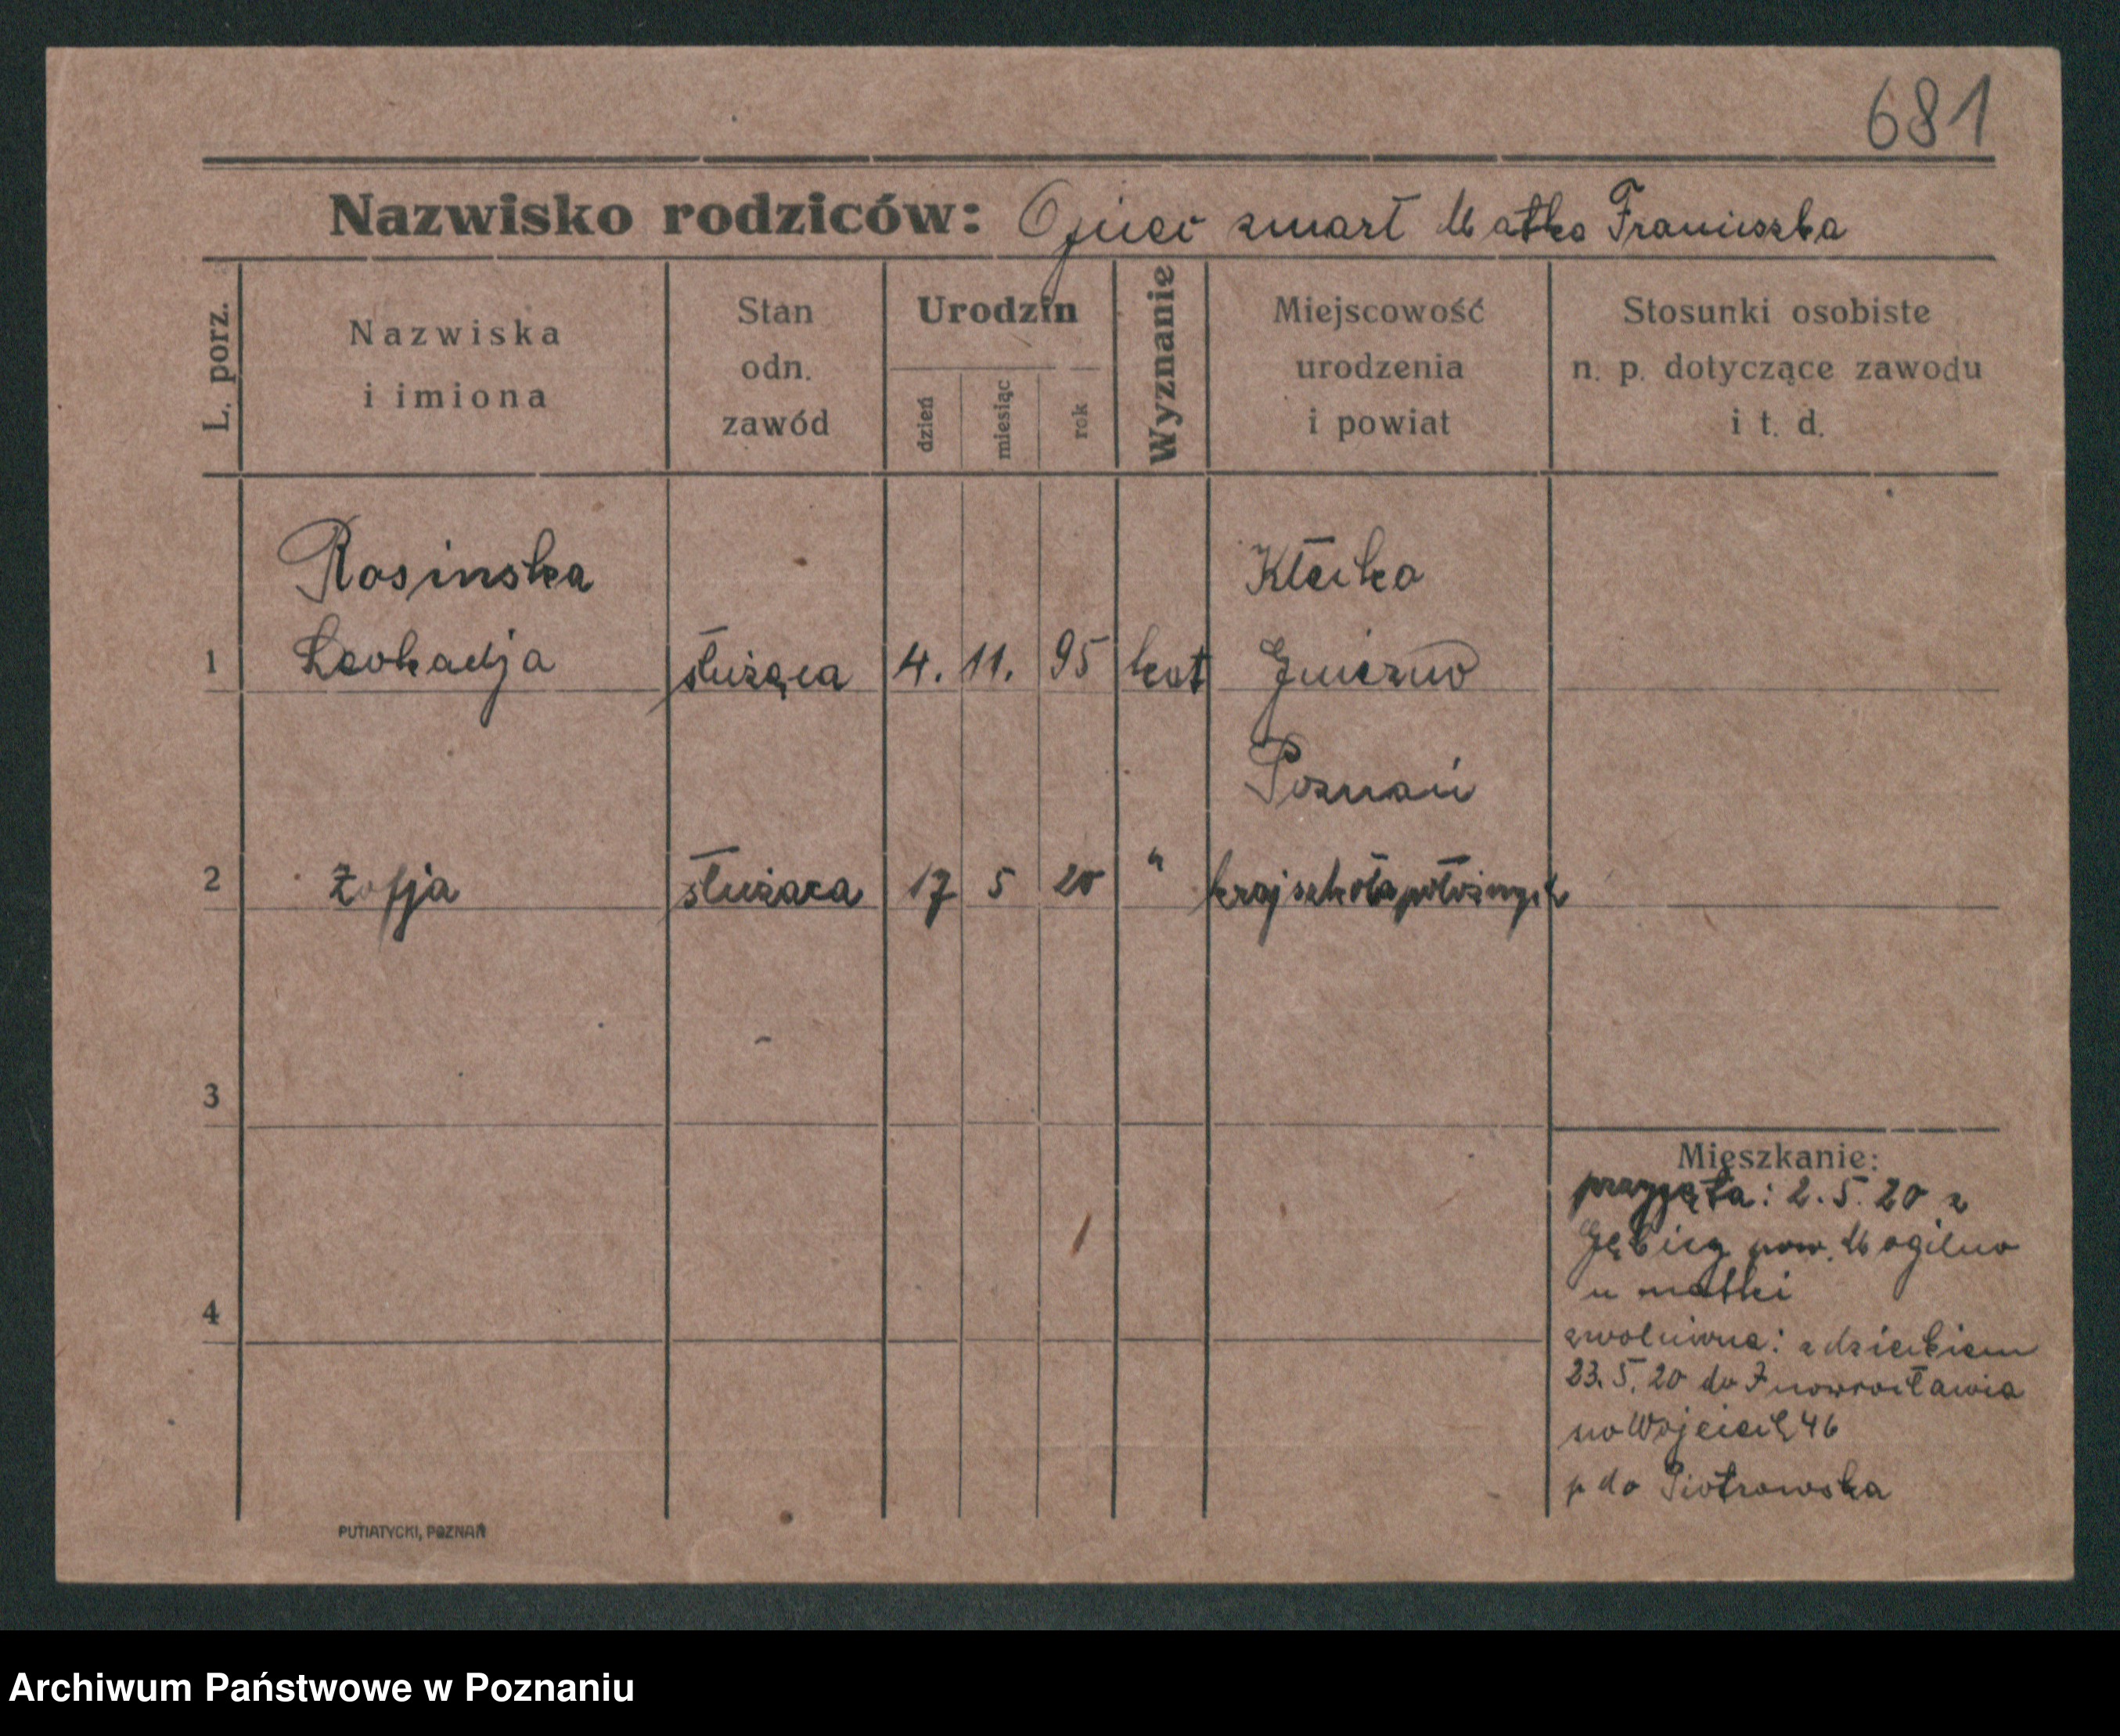 681
Nazwisko rodziców: Ojciec zmarł Matka Franciszka
L. porz.
Nazwiska
i imiona
Stan
odn.
zawód
Urodzin
dzień
miesiąc
rok
Wyznanie
Miejscowość
urodzenia
i powiat
Stosunki osobiste
n. p. dotyczące zawodu
i t. d.
Rosinska
Kłecko
1 Leokadja służąca 4. 11. 95 kat Gniezno
Poznań
2 Zofja służaca 17 5 20 " kraj szkoła położnych
3
4
Mieszkanie:
przyjęta: 2. 5. 20 z
Gębicy pow. Mogilno
u matki
zwolniona: z dzieckiem
23. 5. 20 do Inowrocławia
Wojciech 46
p do Piotrowska
PUTIATYCKI, POZNAŃ
Archiwum Państwowe w Poznaniu